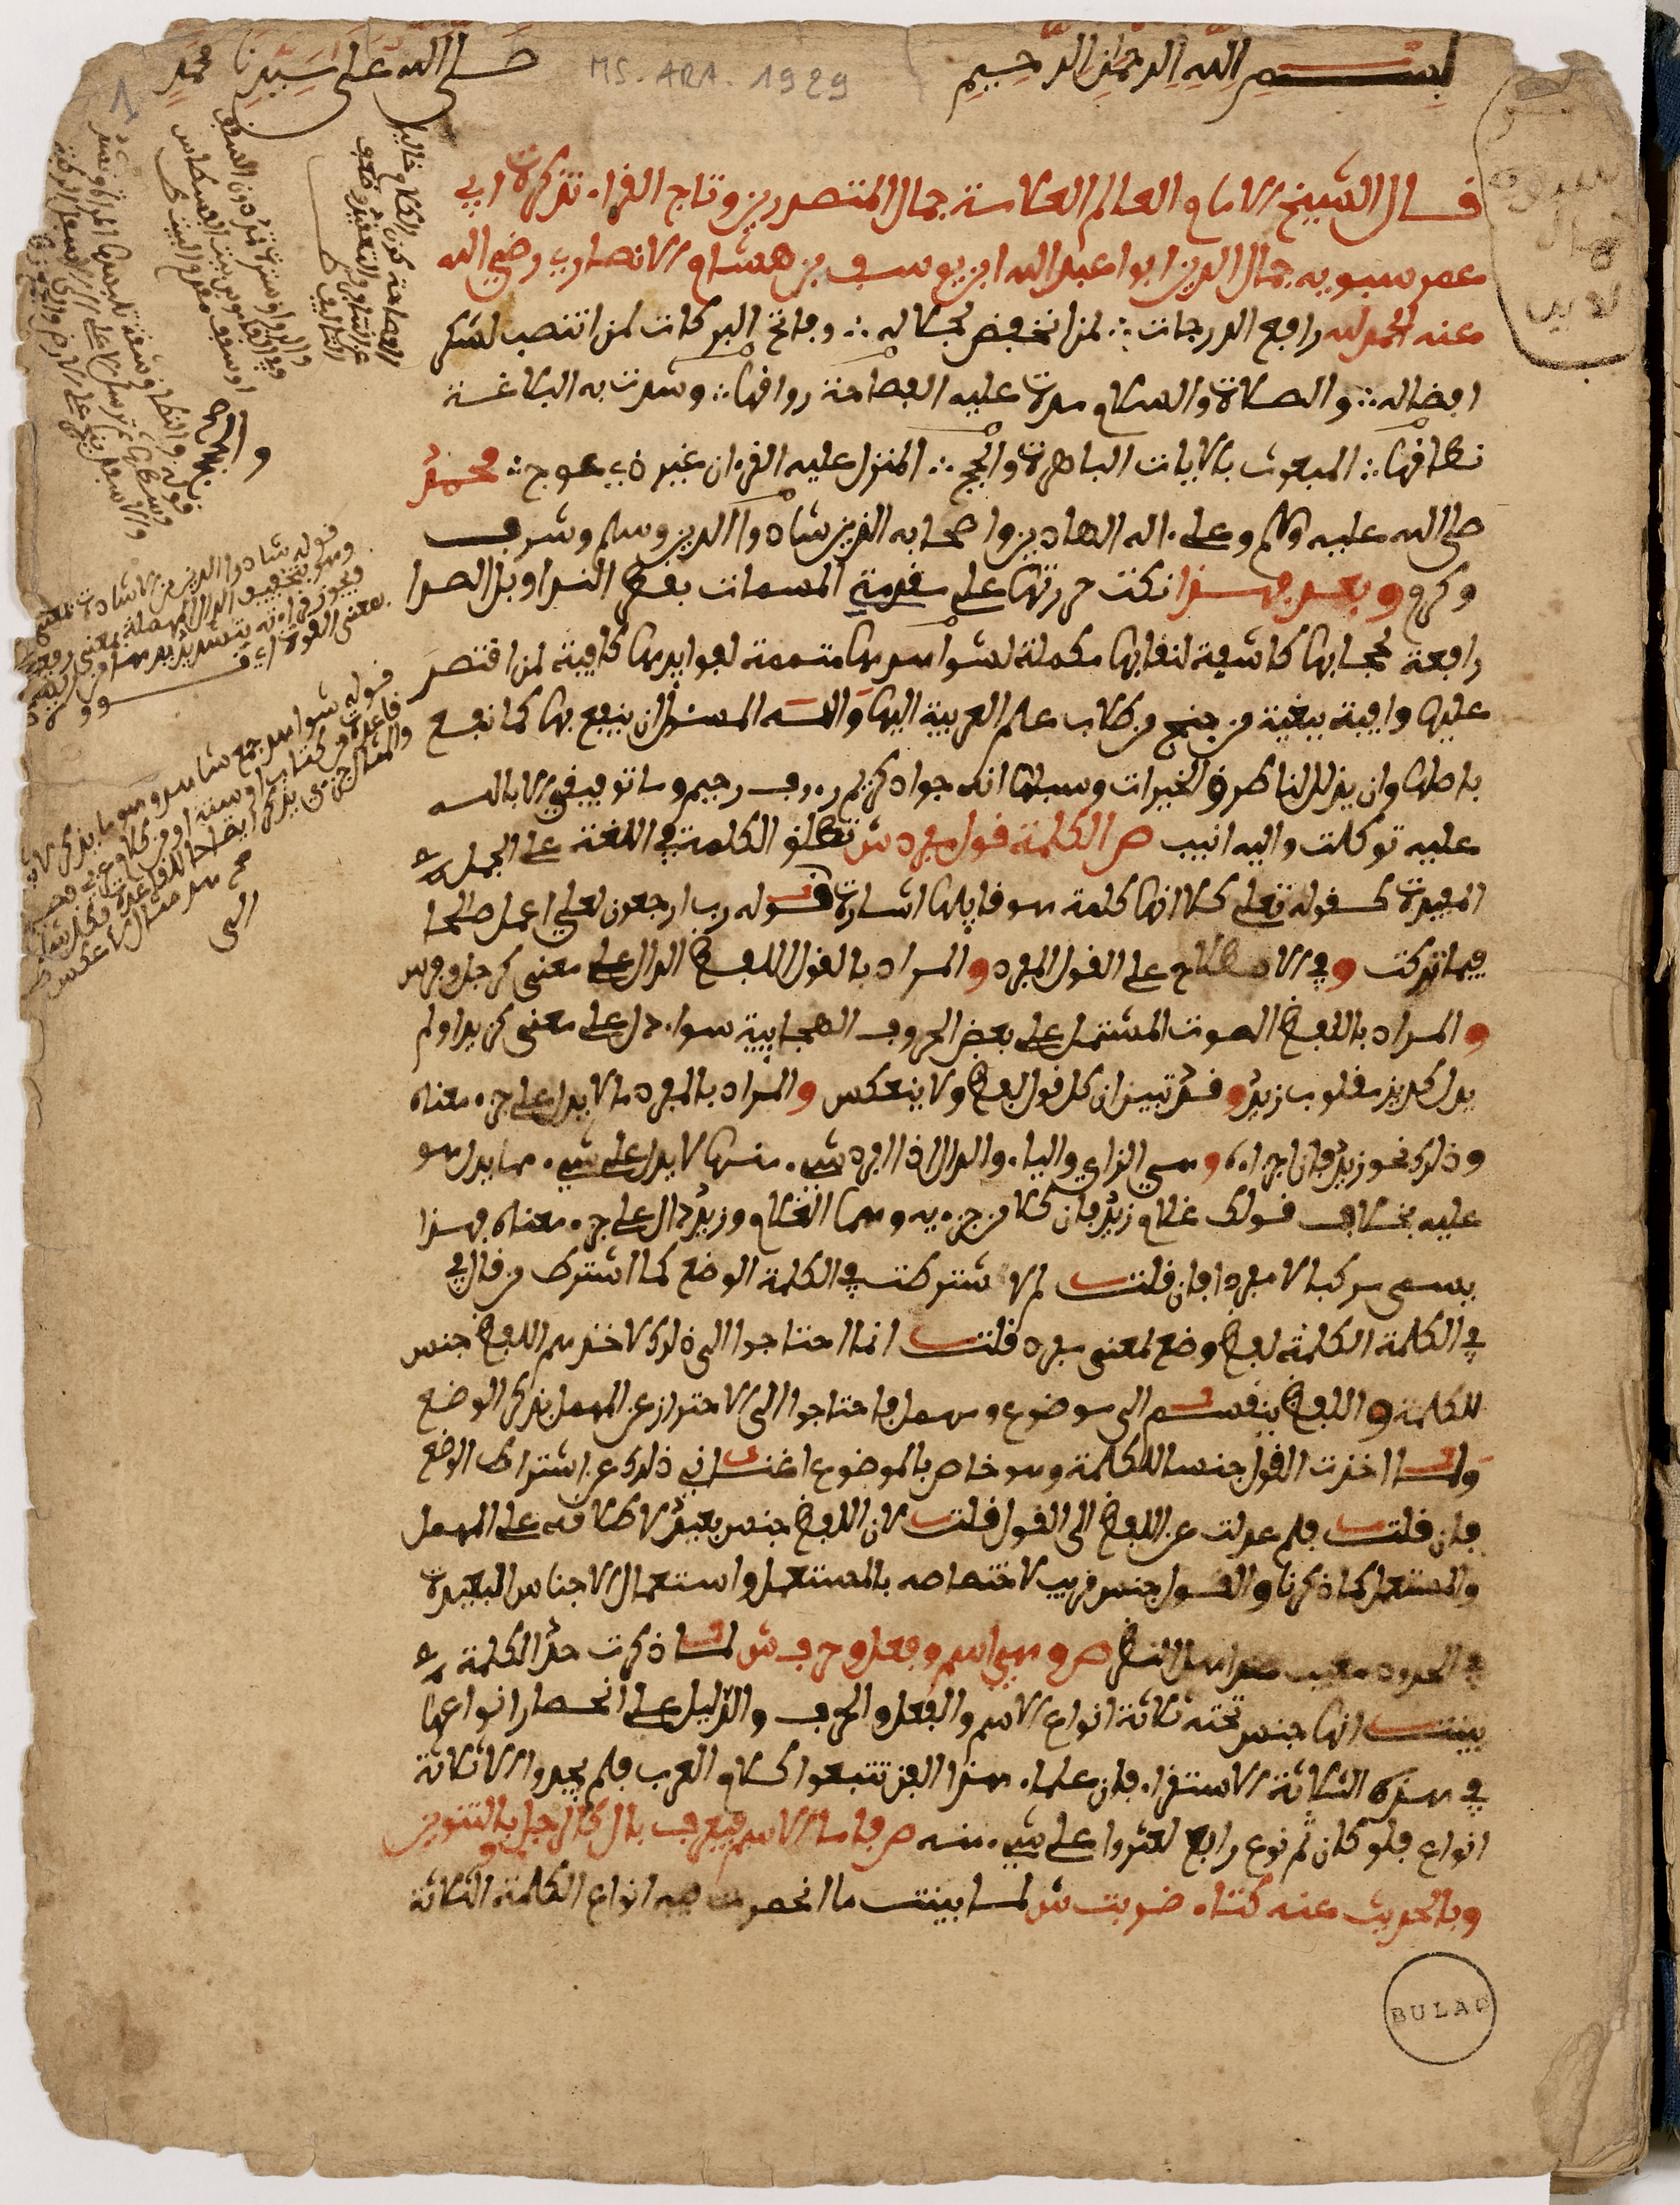 بسم الله الرحمن الرحيم صلى الله على سيدنا محمد
MS. ARA. 1929
1
قال الشيخ الامام العالم العلامة جمال المتصدرين وتاج القراء تذكرة ابي
عمر سبويه جمال الدين ابوا عبد الله ابن يوسف بن هشام الانصاري رضي الله
عنه الحمد لله رافع الدرجات لمن انخفض لجلاله وفاتح البركات لمن انتصب لشكر
افضاله والصلاة والسلام على من مدت عليه الفصاحة رواقها وشدت به البلاغة
نطاقها المبعوث بالايات الباهرة والحجج المنزل عليه القرءان غير ذي عوج محمد
صلى الله عليه وسلم وعلى ءاله الهادين واصحابه الذين شادوا الدين وسلم وشرف
وكرم وبعد فهذا نكت حررتها على مقدمة المسمات بقطر الندا وبل الصدا
رافعة لحجابها كاشفة لنقابها مكملة لشواهدها متممة لفوايدها كافية لمن اقتصر
عليها وافية ببغية من جنح من طلاب علم العربية اليها والله المسئول ان ينفع بها كما نفع
باصلها وان يذلل لنا طرق الخيرات وسبلها انه جواد كريم رءوف رحيم وما توفيقي الا بالله
عليه توكلت واليه انيب ص الكلمة قول مفرد ش تطلق الكلمة في اللغة على الجمل
المفيدة كقوله تعلى كلا انها كلمة هو قايلها اشارة قوله رب ارجعون لعلي اعمل صالحا
فيما تركت وفي الاصطلاح على القول المفرد والمراد بالقول اللفظ الدال على معنى كرجل وفرس
والمراد باللفظ الصوت المشتمل على بعض الحروف الهجايية سواء دل على معنى كزيد او لم
يدل كديز مقلوب زيد وقد تبين ان كل قول لفظ ولا ينعكس والمراد بالمفرد ما لا يدل على جزء معناه
وذلك نحو زيد فان اجزاءه وهي الزاي والياء والدال اذا افرد شيء منها لا يدل على شيء مما يدل هو
عليه بخلاف قولك غلام زيد فان كلا من جزءيه وهما الغلام وزيد دال على جزء معناه فهذا
يسمى مركبا لا مفردا فان قلت لم لا اشتركت في الكلمة الوضع كما اشترك من قال في
في الكلمة الكلمة لفظ وضع لمعنى مفرد قلت انما احتاجوا الى ذلك لاخذهم اللفظ جنس
للكلمة واللفظ ينقسم الى موضوع ومهمل فاحتاجوا الى الاحتراز عن المهمل بذكر الوضع
ولما اخذت القول جنسا للكلمة وهو خاص بالموضوع اغناني ذلك عن اشتراك الوضع
فان قلت فلم عدلت عن اللفظ الى القول قلت لان اللفظ جنس بعيد لاطلاقه على المهمل
والمستعمل كما ذكرنا والقول جنس قريب لاختصاصه بالمستعمل واستعمال الاجناس البعيدة
في الحدود معيب عند اهل النظر ص وهي اسم وفعل وحرف ش لما ذكرت حد الكلمة
بينت انها جنس تحته ثلاثة انواع الاسم والفعل والحرف والدليل على انحصار انواعها
في هذه الثلاثة الاستقراء فان علماء هذا الفن تتبعوا كلام العرب فلم يجدوا الا ثلاثة
انواع فلو كان ثم نوع رابع لعثروا على شيء منه ص فاما الاسم فيعرف بال كالرجل وبالتنوين
وبالحديث عنه كتاء ضربت ش لما بينت ما انحصرت فيه انواع الكلمة الثلاثة
قوله شادوا الدين من الاشادة بمعنى
وهو بتخفيف الدال المهملة بمعنى رفعه
قوله شواهد جمع شاهد وهو ما يذكر لاثبات
قاعدة من كتاب او سنة او من كلام عربي فصيح
والمثال جزءي يذكر ايضاحا للقاعدة فكل شاهد
مثال ولا عكس
BULAC